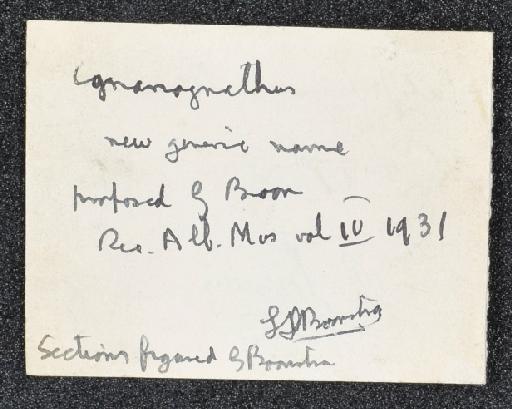 Cynariognathus
new generic name
proposed by Broom
Rec. Alb. Mus vol IV 1931
L D Boonstra
Sections figured by Boonstra